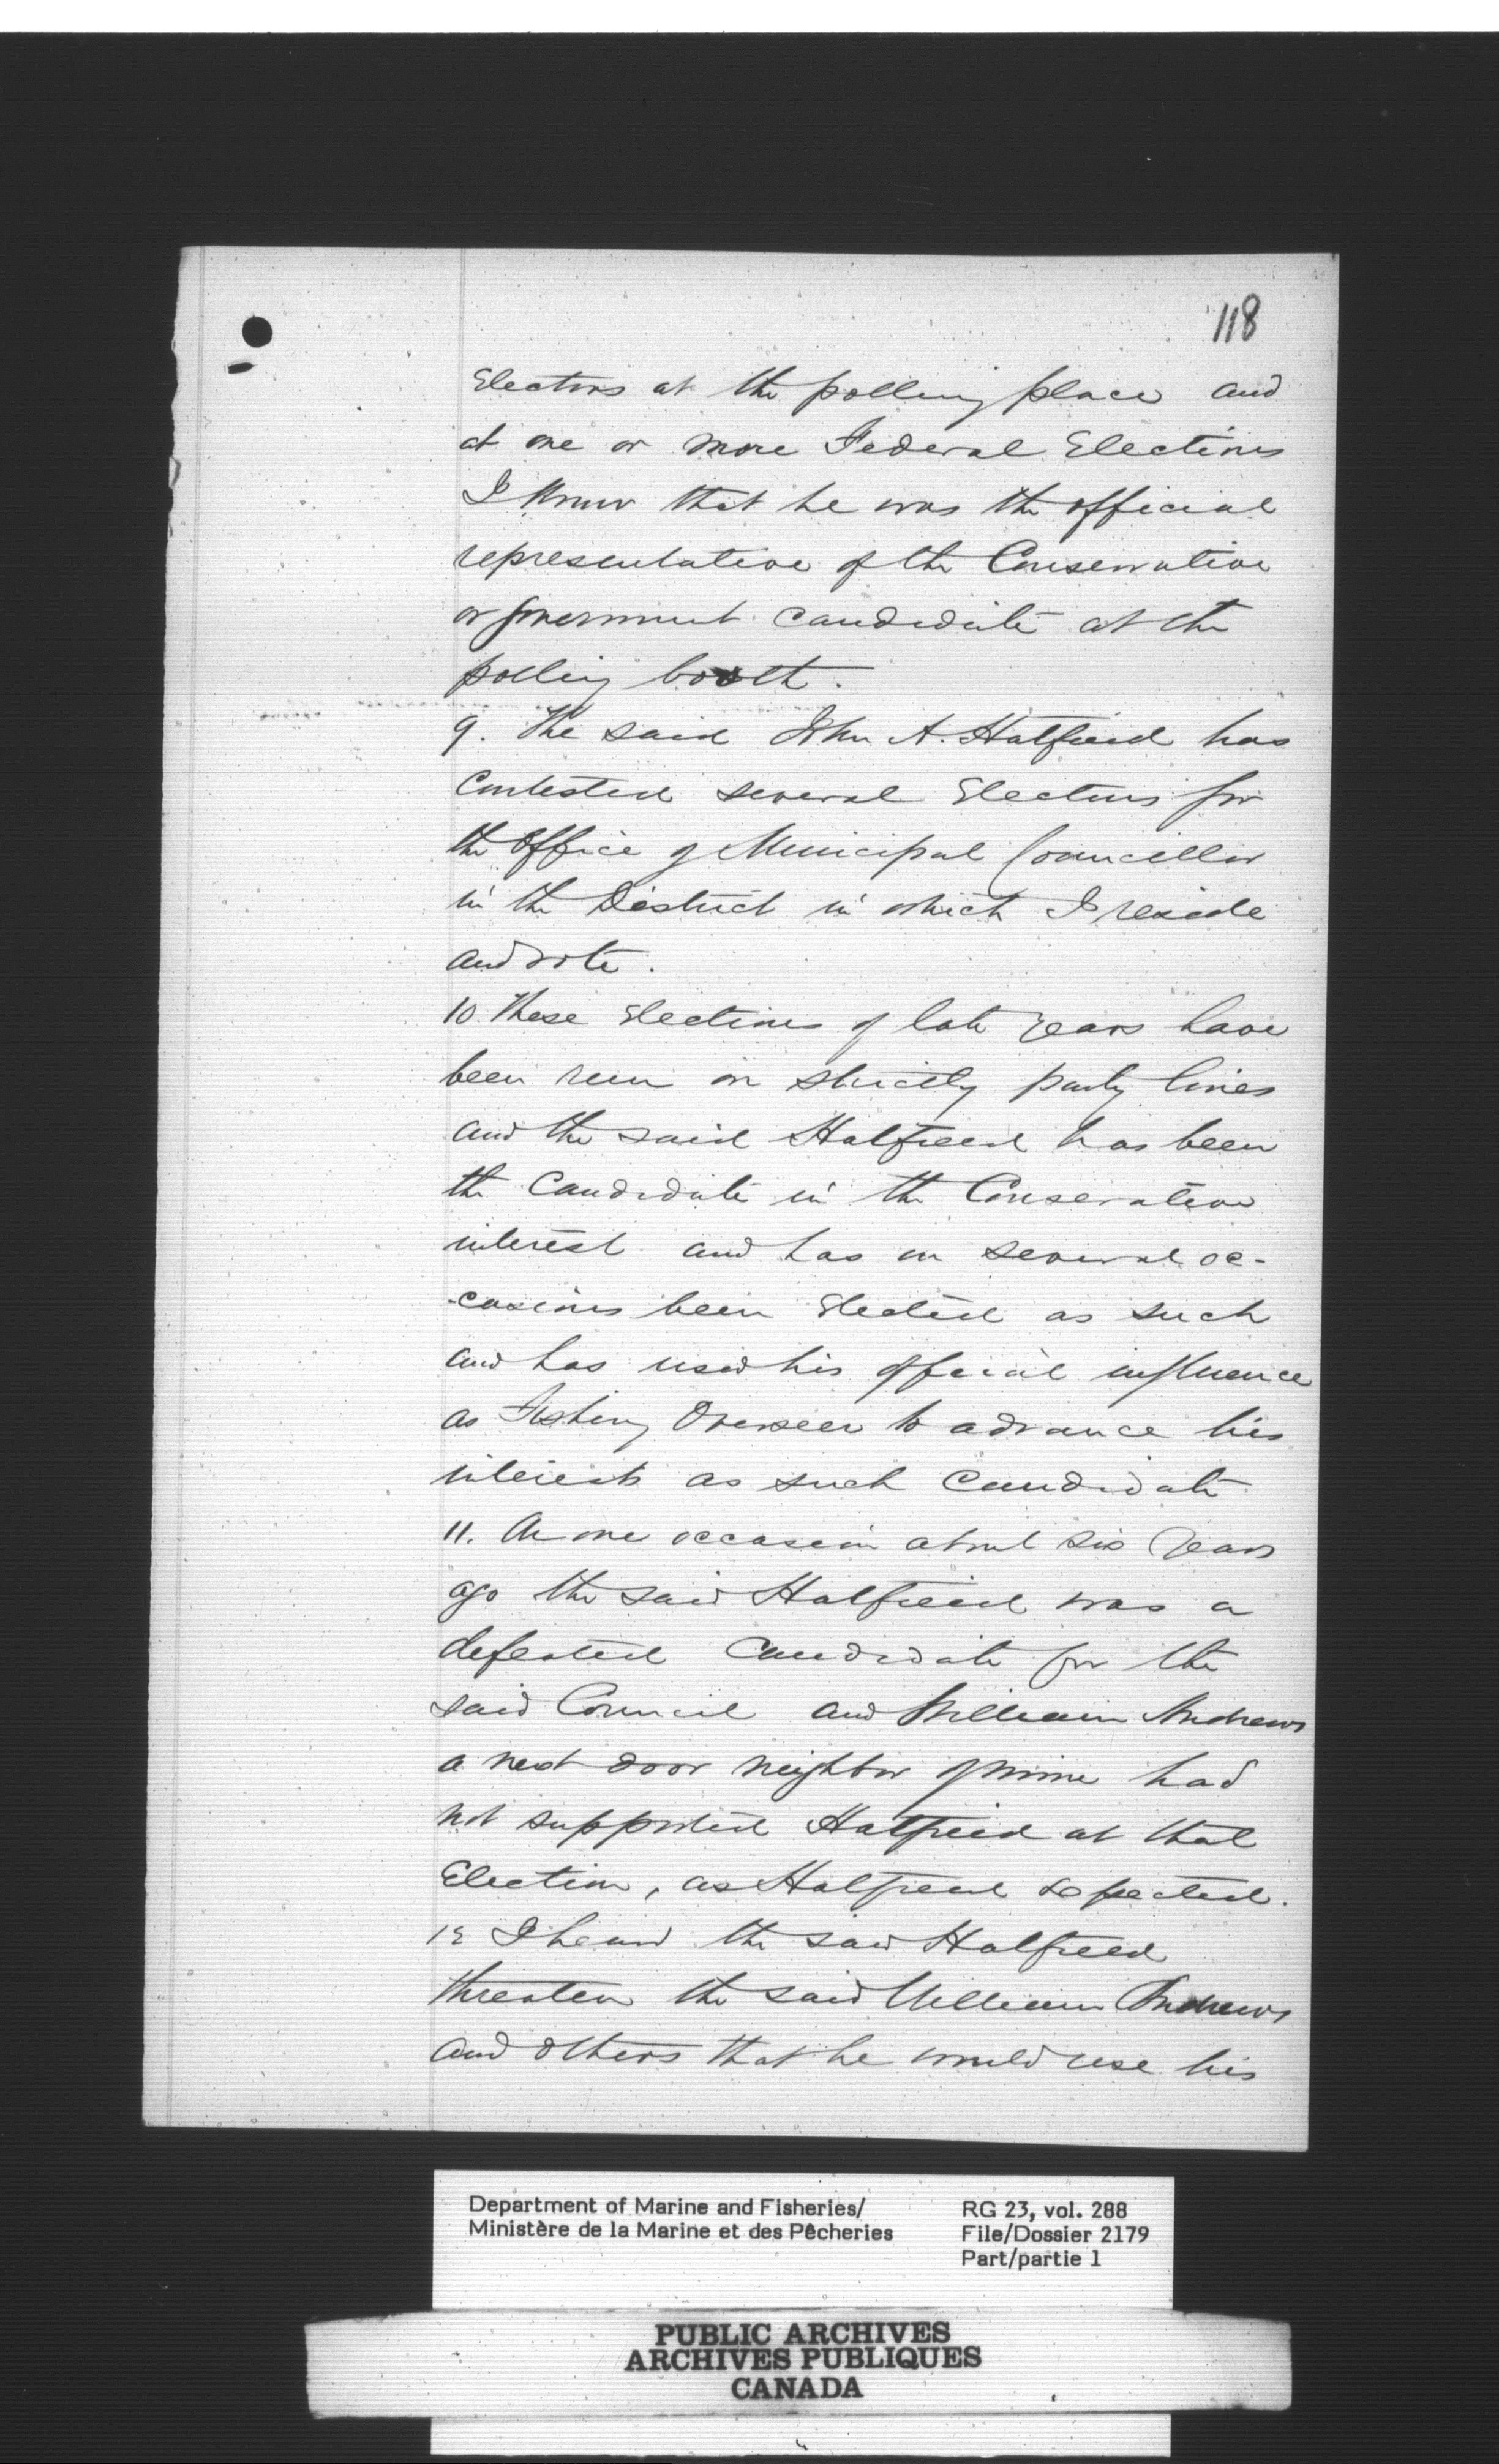 118
Electors at the polling place and
at one or more Federal Elections
I know that he was the official
representative of the Conservative
or government candidate at the
polling booth.
9. The said John A. Hatfield has
Contested several Elections for
the Office of Municipal Councillor
in the District in which I reside
and vote.
10 These Elections of late years have
been run on strictly party lines
and the said Hatfield has been
the Candidate in the Conservative
interest and has on several oc-
-casions been Elected as such
and has used his official influence
as Fishery Overseer to advance his
interests as such Candidate
11. On one occasion about six years
ago the said Hatfield was a
defeated Candidate for the
said Council and William Andrews
a next door neighbor of mine had
not supported Hatfield at that
Election, as Hatfield expected.
12 I heard the said Hatfield
threaten the said William Andrews
and others that he would use his
Department of Marine and Fisheries/
Ministère de la Marine et des Pêcheries
RG 23, vol. 288
File/Dossier 2179
Part/partie 1
PUBLIC ARCHIVES
ARCHIVES PUBLIQUES
CANADA